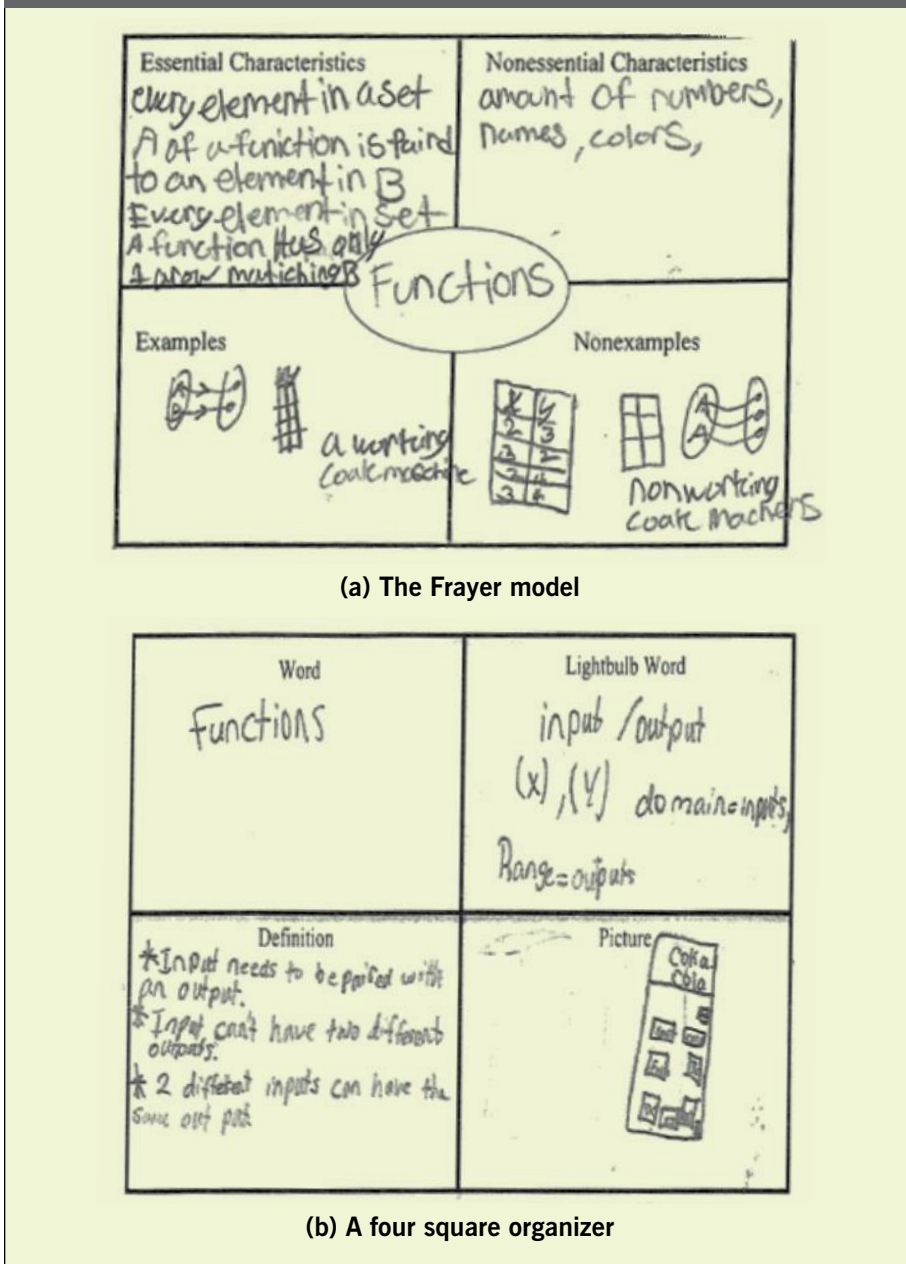 Essential Characteristics
every element in a set
A of a function is paird
to an element in B
Every element in set
A function Has only
1 arow matiching B
Nonessential Characteristics
amount of numbers,
names, colors,
Functions
Examples
A
B
a working
Coak maechine
Nonexamples
X Y
2 3
3 2
2 4
3 4
A
A
nonworking
coak machers
(a) The Frayer model
Word
Functions
Lightbulb Word
input / output
(x), (y) domain=inputs,
Range=outputs
Definition
*Input needs to be paired with
an output.
*Input can't have two different
outputs.
* 2 different inputs can have the
same out put
Picture
Coka
Cola
(b) A four square organizer